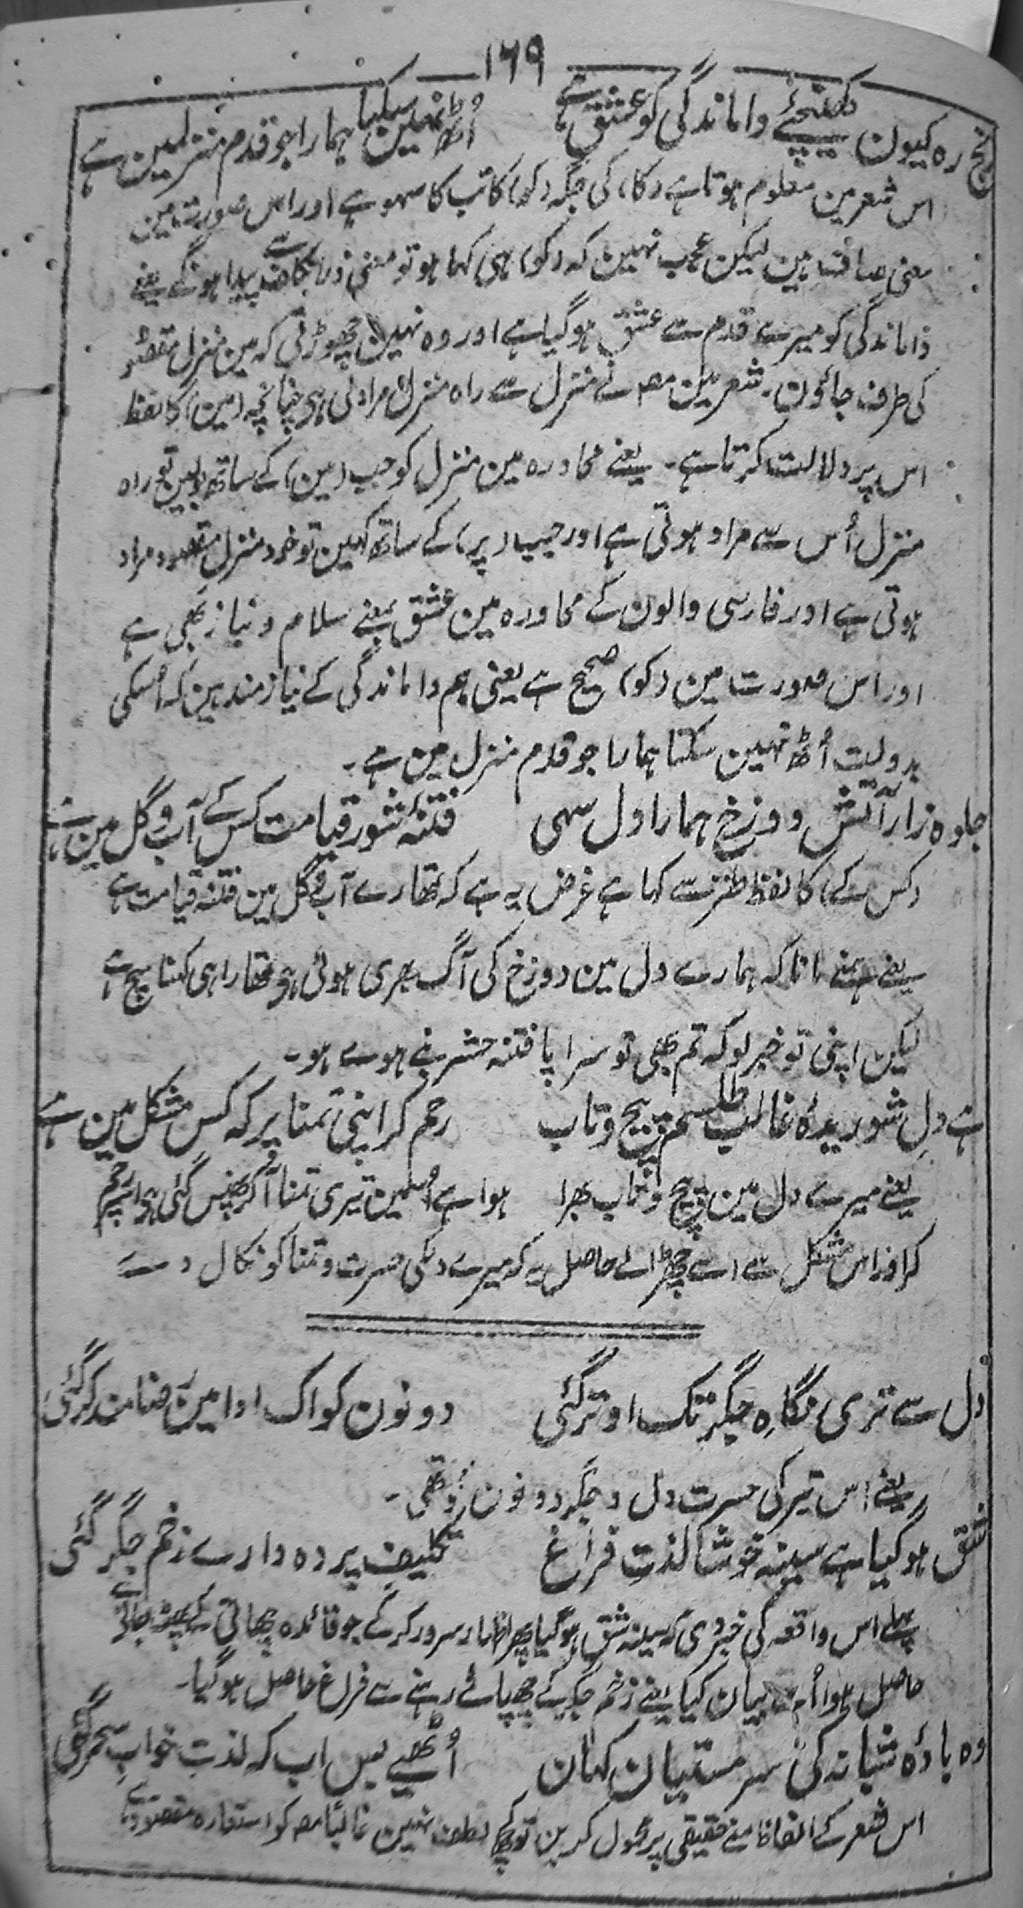 ۱۶۹
رنج رہ کیون کھنچئے واماندگی کو عشق ہے اُٹھ نہین سکتا ہمارا جو قدم منزل مین ہے
اس شعر مین معلوم ہوتا ہے (کا) کی جگہ (کو) کاتب کا سہو ہے اور اس صورت مین
معنی صاف ہین لیکن عجب نہین کہ (کو) ہی کہا ہو تو معنی ذرا تکلف سے پیدا ہونگے یعنے
واماندگی کو میرے قدم سے عشق ہوگیا ہے اور وہ نہین چھوڑتی کہ مین منزل مقصود
کی طرف جاؤن۔ شعر مین مصـ نے منزل سے راہ منزل مراد لی ہی چنانچہ (مین) کا لفظ
اس پر دلالت کرتا ہے۔ یعنے محاورہ مین منزل کو جب (مین) کے ساتھ بولین تو راہ
منزل اُس سے مراد ہوتی ہے اور جب (پر) کے ساتھ کہین تو خود منزل مقصود مراد
ہوتی ہے اور فارسی والون کے محاورہ مین عشق بمعنے سلام و نیاز بھی ہے
اور اس صورت مین (کو) صحیح ہے یعنی ہم واماندگی کے نیازمند ہین کہ اُسکی
بدولت اُٹھ نہین سکتا ہمارا جو قدم منزل مین ہے۔
جلوہ زار آتش دوزخ ہمارا دل سہی فتنۂ شور قیامت کس کے آب و گل مین ہے
(کس کے) کا لفظ طنز سے کہا ہے غرض یہ ہے کہ تمھارے آب و گل مین فتنہ قیامت ہے
یعنے ہمنے مانا کہ ہمارے دل مین دوزخ کی آگ بھری ہوئی ہو تمھارا ہی کہنا سچ ہے
لیکن اپنی تو خبر لو کہ تم بھی تو سراپا فتنہ حشر بنے ہوے ہو۔
ہے دل شوریدۂ غالب طلسم پیچ و تاب رحم کر اپنی تمنا پر کہ کس مشکل مین ہے
یعنے میرے دل مین پیچ و تاب بھرا ہوا ہے اُسمین تیری تمنا آکر پھنس گئی ہو اسپر رحم
کر اور اس مشکل سے اسے چھڑا لے حاصل یہ کہ میرے دلکی حسرت و تمنا کو نکال دے
دل سے تری نگاہ جگر تک اوتر گئی دونون کو اک ادا مین رضامند کر گئی
یعنے اس تیر کی حسرت دل و جگر دونون کو تھی۔
شق ہوگیا ہے سینہ خوشا لذت فراغ تکلیف پردہ داری زخم جگر گئی
پہلے اس واقعہ کی خبر دی کہ سینہ شق ہوگیا پھر اظہار سرور کر کے جو فائدہ چھاتی کے پھٹ جانے سے
حاصل ہوا اُسے بیان کیا یعنے زخم جگر کے چھپائے رہنے سے فراغ حاصل ہوگیا۔
وہ بادۂ شبانہ کی سرمستیان کہان اُٹھیے بس اب کہ لذت خواب سحر گئی
اس شعر کے الفاظ معنے حقیقی پر محمول کرین تو کچھ لطف نہین غالبا مصـ کو استعارہ مقصود ہے